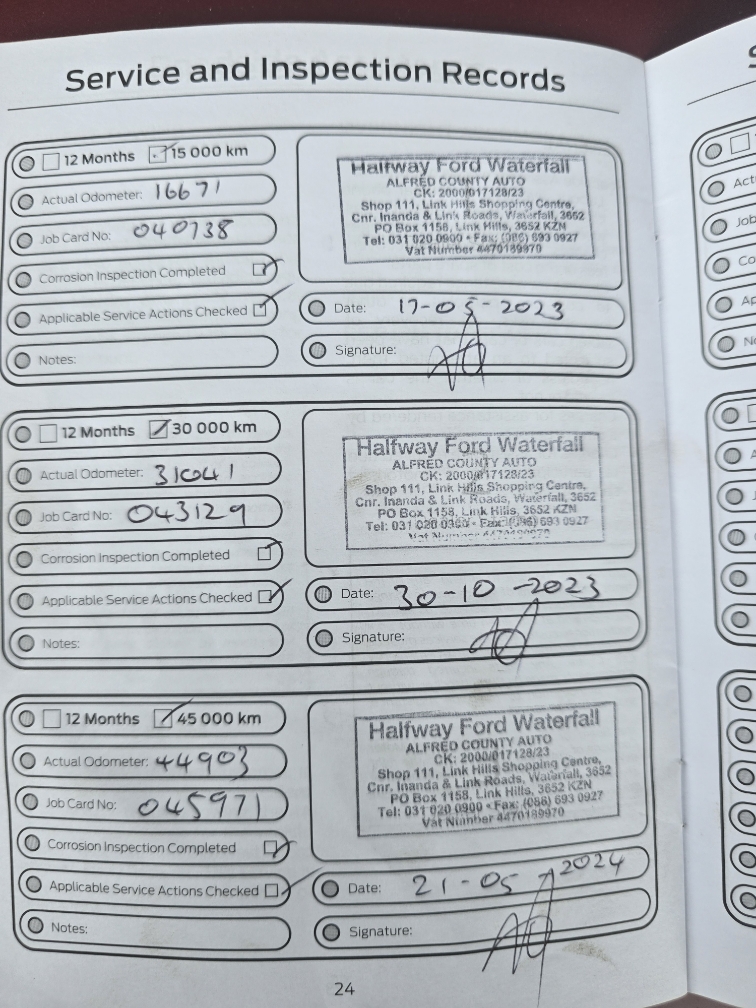 Service and Inspection Records
12 Months 15 000 km
Actual Odometer: 16671
Job Card No: 040738
Corrosion Inspection Completed
Applicable Service Actions Checked
Notes:
Halfway Ford Waterfall
ALFRED COUNTY AUTO
CK: 2000/017128/23
Shop 111, Link Hills Shopping Centre,
Cnr. Inanda & Link Roads, Waterfall, 3652
PO Box 1158, Link Hills, 3652 KZN
Tel: 031 020 0900 • Fax: (086) 693 0927
Vat Number 4470189970
Date: 17-05-2023
Signature:
12 Months 30 000 km
Actual Odometer: 31041
Job Card No: 043129
Corrosion Inspection Completed
Applicable Service Actions Checked
Notes:
Halfway Ford Waterfall
ALFRED COUNTY AUTO
CK: 2000/017128/23
Shop 111, Link Hills Shopping Centre,
Cnr. Inanda & Link Roads, Waterfall, 3652
PO Box 1158, Link Hills, 3652 KZN
Tel: 031 020 0900 • Fax: (086) 693 0927
Vat Number
Date: 30-10-2023
Signature:
12 Months 45 000 km
Actual Odometer: 44903
Job Card No: 045971
Corrosion Inspection Completed
Applicable Service Actions Checked
Notes:
Halfway Ford Waterfall
ALFRED COUNTY AUTO
CK: 2000/017128/23
Shop 111, Link Hills Shopping Centre,
Cnr. Inanda & Link Roads, Waterfall, 3652
PO Box 1158, Link Hills, 3652 KZN
Tel: 031 020 0900 • Fax: (086) 693 0927
Vat Number 4470189970
Date: 21-05-2024
Signature:
24